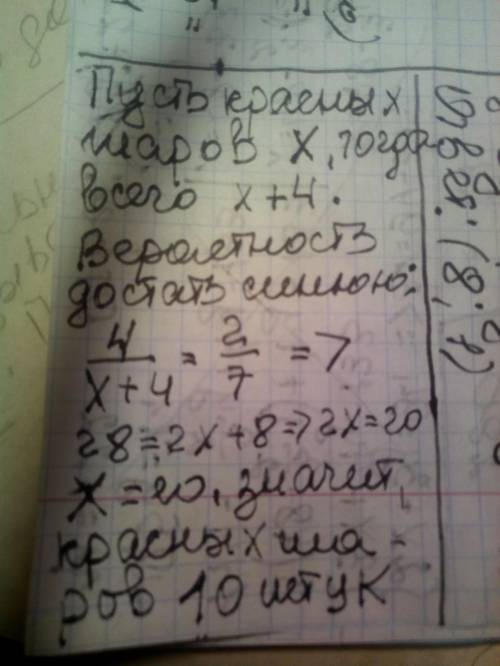 Пусть красных
шаров X, тогда
всего x+4.
Вероятность
достать синюю:
4/X+4 = 2/7 =>
28=2x+8=>2x=20
X=20, значит,
красных ша-
ров 10 штук